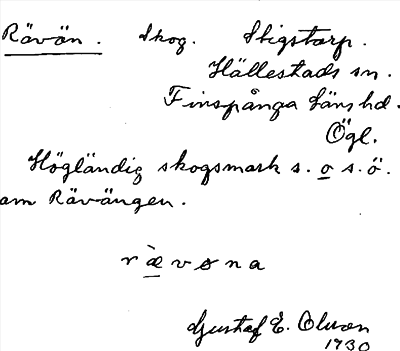 Rävön. Skog. Stigstorp.
Hällestads sn.
Finspånga läns hd.
Ögl.
Högländig skogsmark s. o s.ö.
om Rävängen.
rævøna
Gustaf E. Olsson
1930